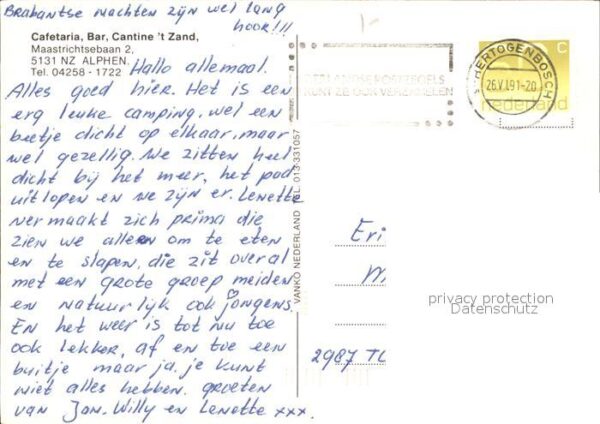 Brabantse nachten zijn wel lang
hoor!!!
Cafetaria, Bar, Cantine 't Zand,
Maastrichtsebaan 2,
5131 NZ ALPHEN.
Tel. 04258 - 1722
Hallo allemaal.
Alles goed hier. Het is een
erg leuke camping, wel een
beetje dicht op elkaar, maar
wel gezellig. We zitten heel
dicht bij het meer, het pad
uitlopen en we zijn er. Lenette
vermaakt zich prima die
zien we alleen om te eten
en te slapen, die zit overal
met een grote groep meiden
en natuurlijk ook jongens.
En het weer is tot nu toe
ook lekker, af en toe een
buitje maar ja, je kunt
niet alles hebben. groeten
van Jan, Willy en Lenette xxx.
VANKO NEDERLAND TEL. 013-331057
NEDERLANDSE POSTZEGELS
KUNT ZE OOK VERZAMELEN
'S-HERTOGENBOSCH
26.V.91-20
C
nederland
Eri
2987 TL
privacy protection
Datenschutz